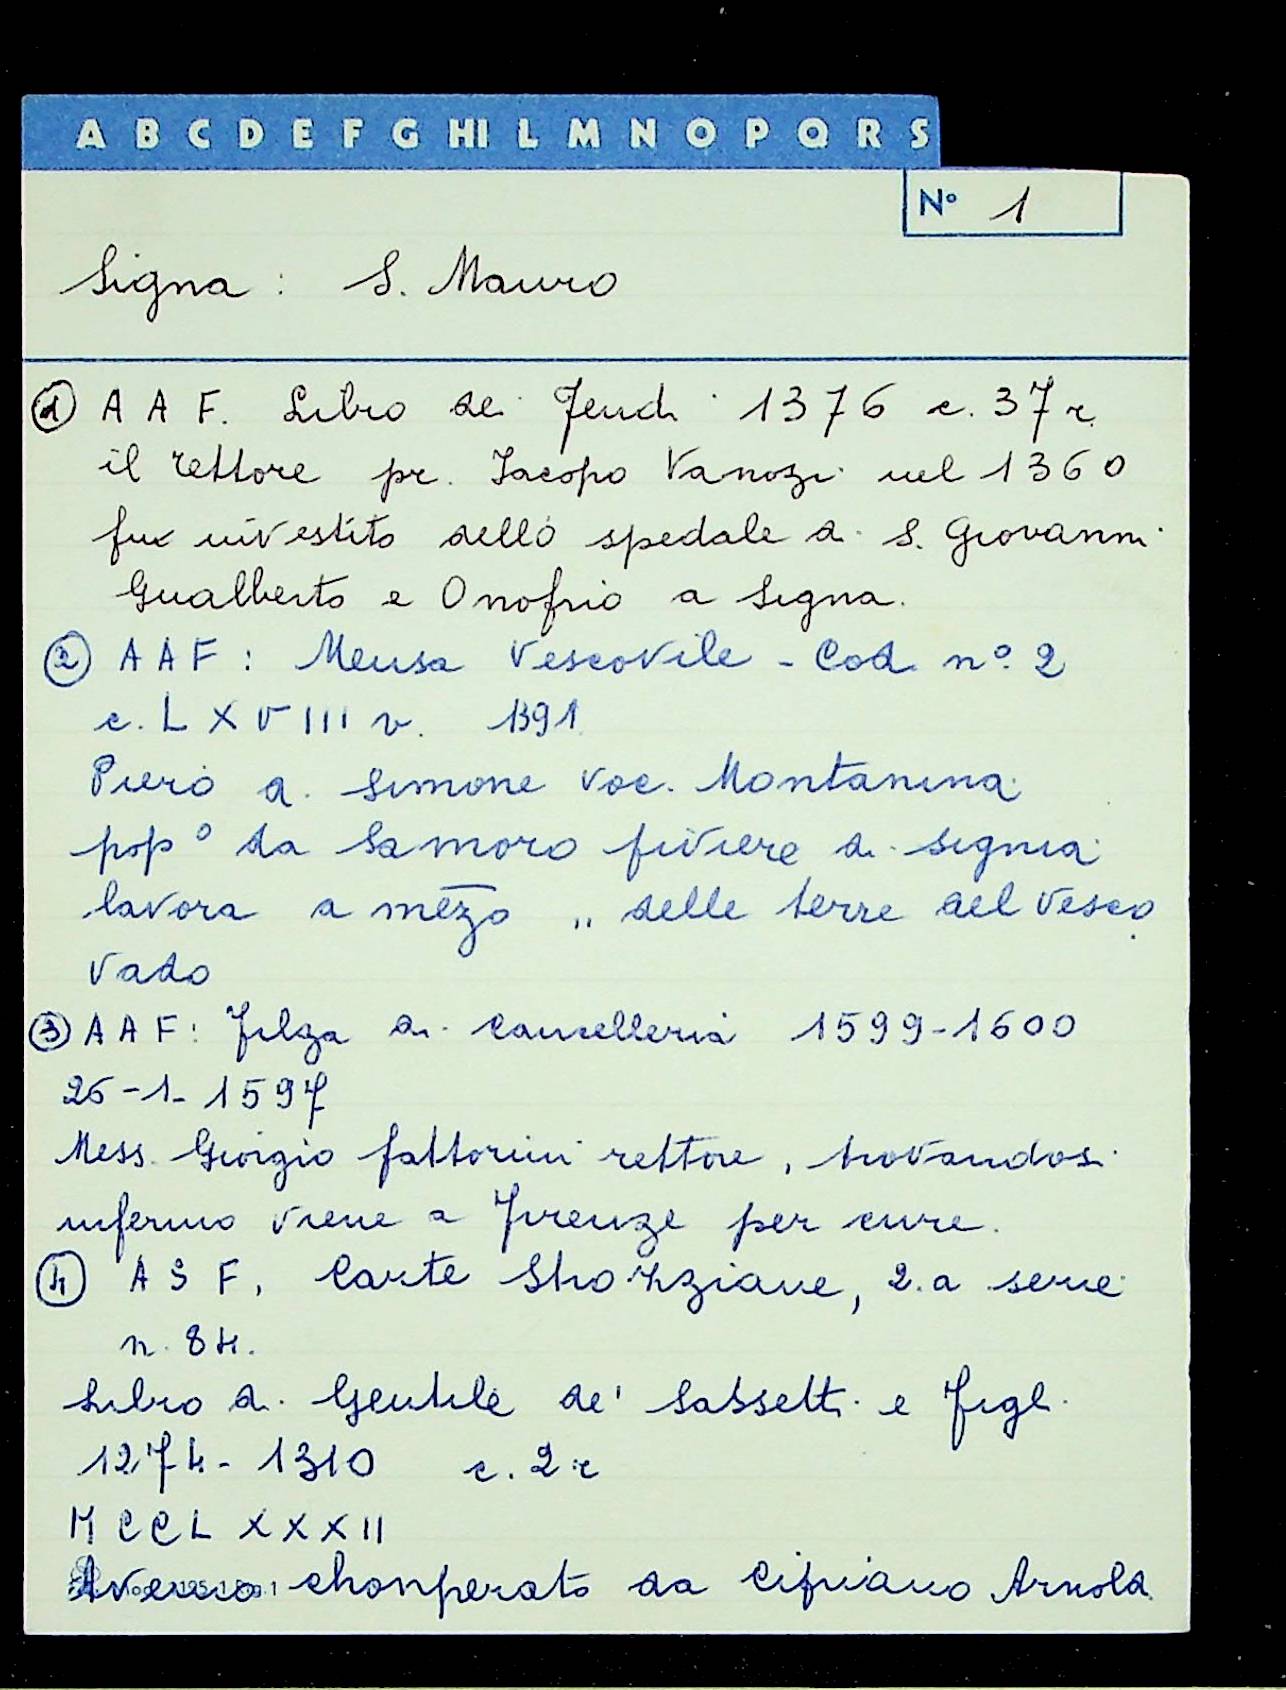 A B C D E F G HI L M N O P Q R S
N° 1
Signa : S. Mauro
① A A F. Libro dei Feudi 1376 c. 37 r.
il rettore pr. Iacopo Vanozi nel 1360
fu investito dello spedale di S. Giovanni
Gualberto e Onofrio a Signa.
② A A F : Mensa Vescovile - Cod. n° 2
c. L X V III v. 1391
Piero di Simone voc. Montanina
pop° da Samoro piviere di Signia
lavora a mezo ,, delle terre del Vesco
vado
③ A A F : Filza di Cancelleria 1599-1600
26-1-1597
Mess. Giorgio fattorini rettore, trovandosi
infermo viene a Firenze per cure.
④ A S F. Carte Strozziane, 2.a serie
n. 84.
Libro di Gentile de' Sassetti e Figli
1274-1310 c. 2 r
M C C L X X X II
Avemo chonperato da Cipriano Arnoldi